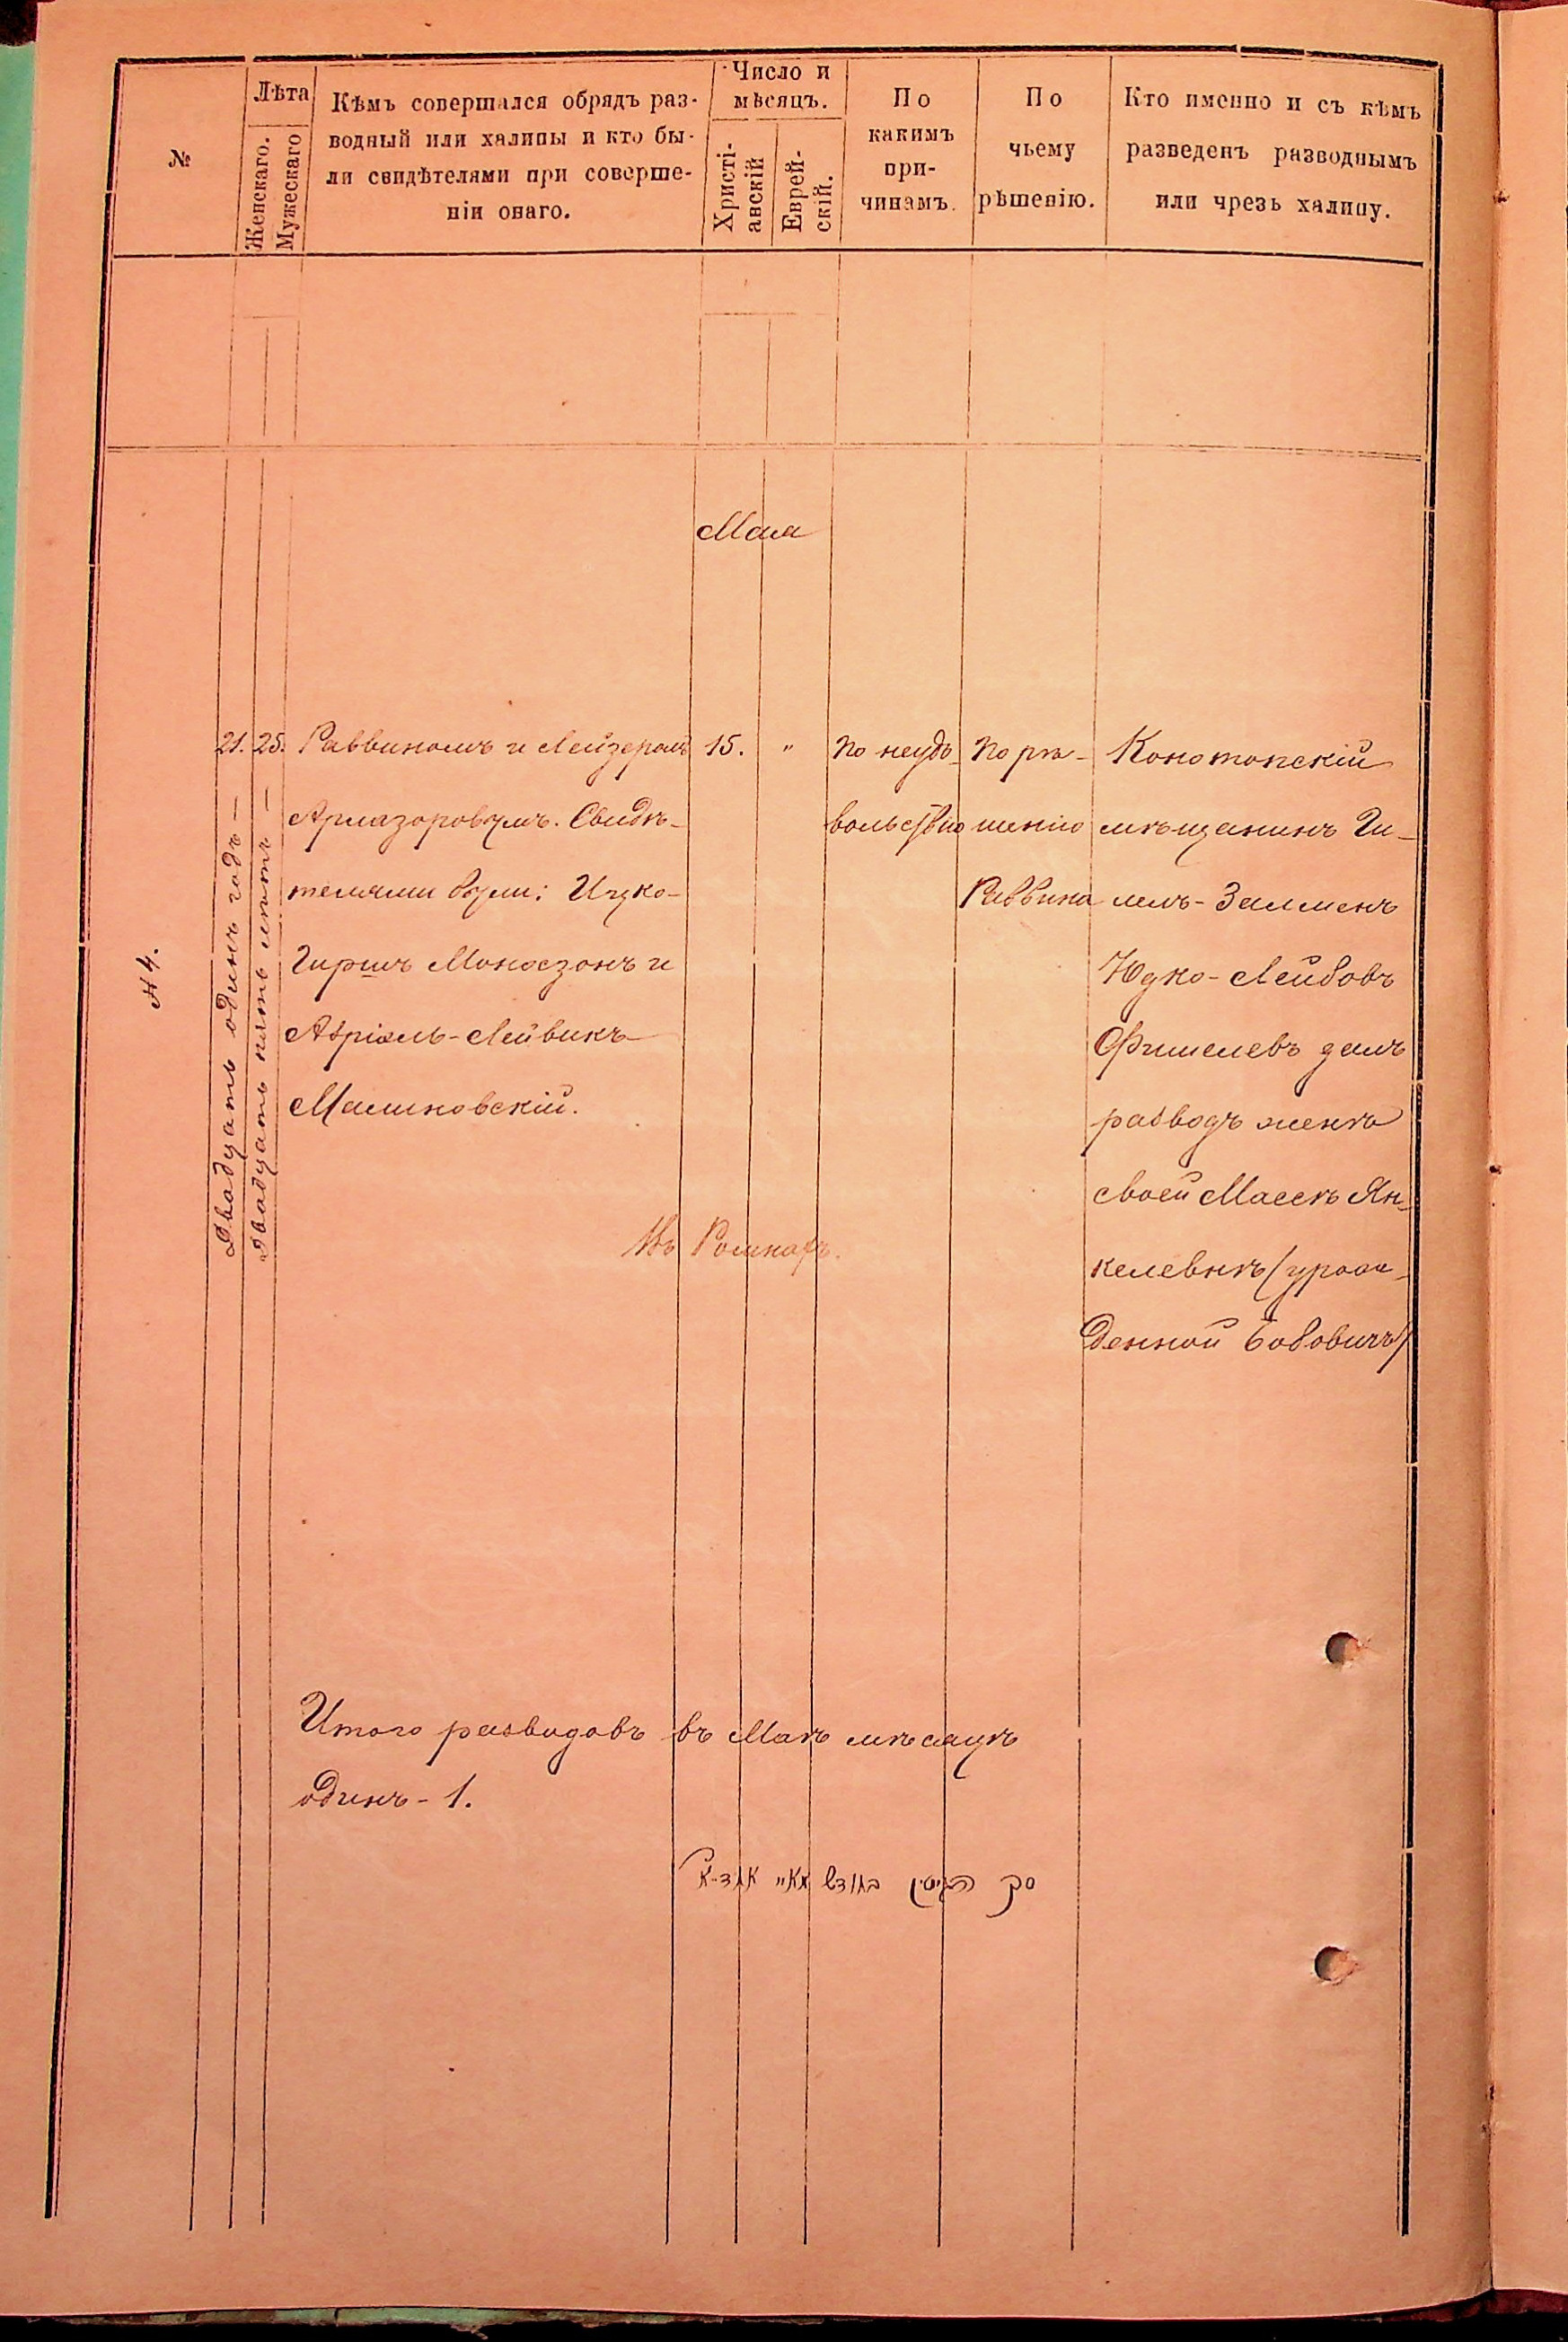 №
Лѣта
Женскаго.
Мужескаго
Кѣмъ совершался обрядъ раз-
водный или халицы и кто бы-
ли свидѣтелями при соверше-
ніи онаго.
Число и
мѣсяцъ.
Христі-
анскій
Еврей-
скій.
По
какимъ
при-
чинамъ.
По
чьему
рѣшенію.
Кто именно и съ кѣмъ
разведенъ разводнымъ
или чрезъ халицу.
Мая
№ 4.
21.
Двадцать одинъ годъ —
25.
Двадцать пять лѣтъ —
Раввиномъ и Лейзеромъ
Арлазоровымъ. Свидѣ-
телями были: Ицко-
Гиршъ Моносзонъ и
Азріэль-Лейвикъ
Малиновскій.
15.
"
По неудо-
вольствію
По рѣ-
шенію
Раввина
Конотопскій
мѣщанинъ Ги-
лелъ-Залменъ
Юдко-Лейбовъ
Фишелевъ далъ
разводъ женѣ
своей Массѣ Ян-
келевнѣ (урож-
денной Бобовичъ)
Въ Ромнахъ.
Итого разводовъ въ Маѣ мѣсяцѣ
одинъ - 1.
סך הגיטין בחודש מאי אחד א